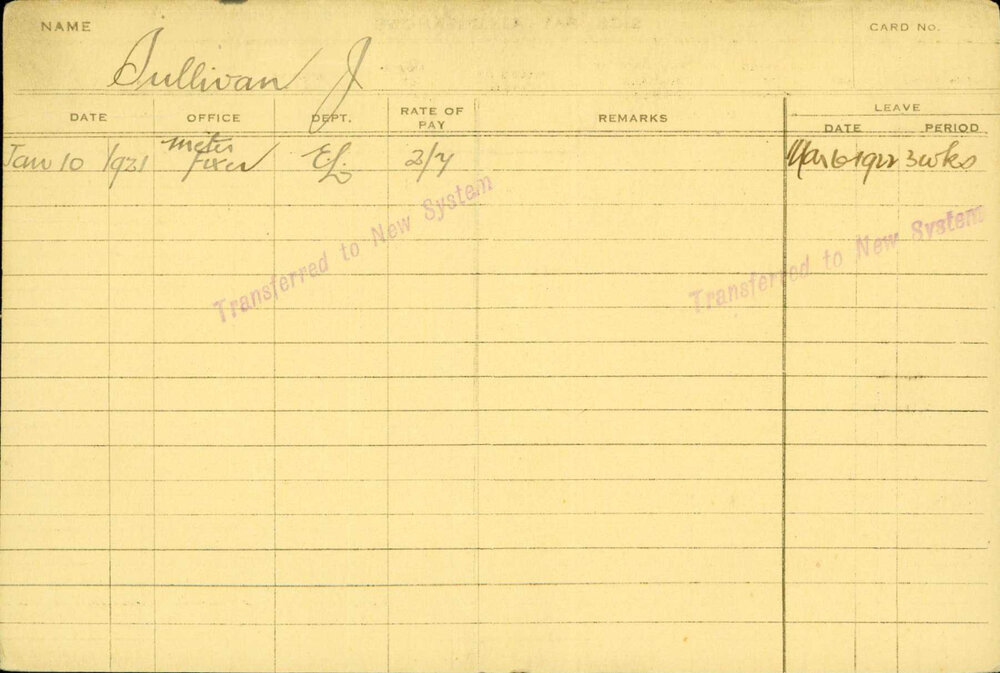 NAME
CARD NO.
Sullivan J
DATE OFFICE DEPT. RATE OF PAY REMARKS LEAVE
DATE PERIOD
Jan 10 1921 meter fixer EL. 2/7 Mar 6 1922 3 wks
Transferred to New System
Transferred to New System